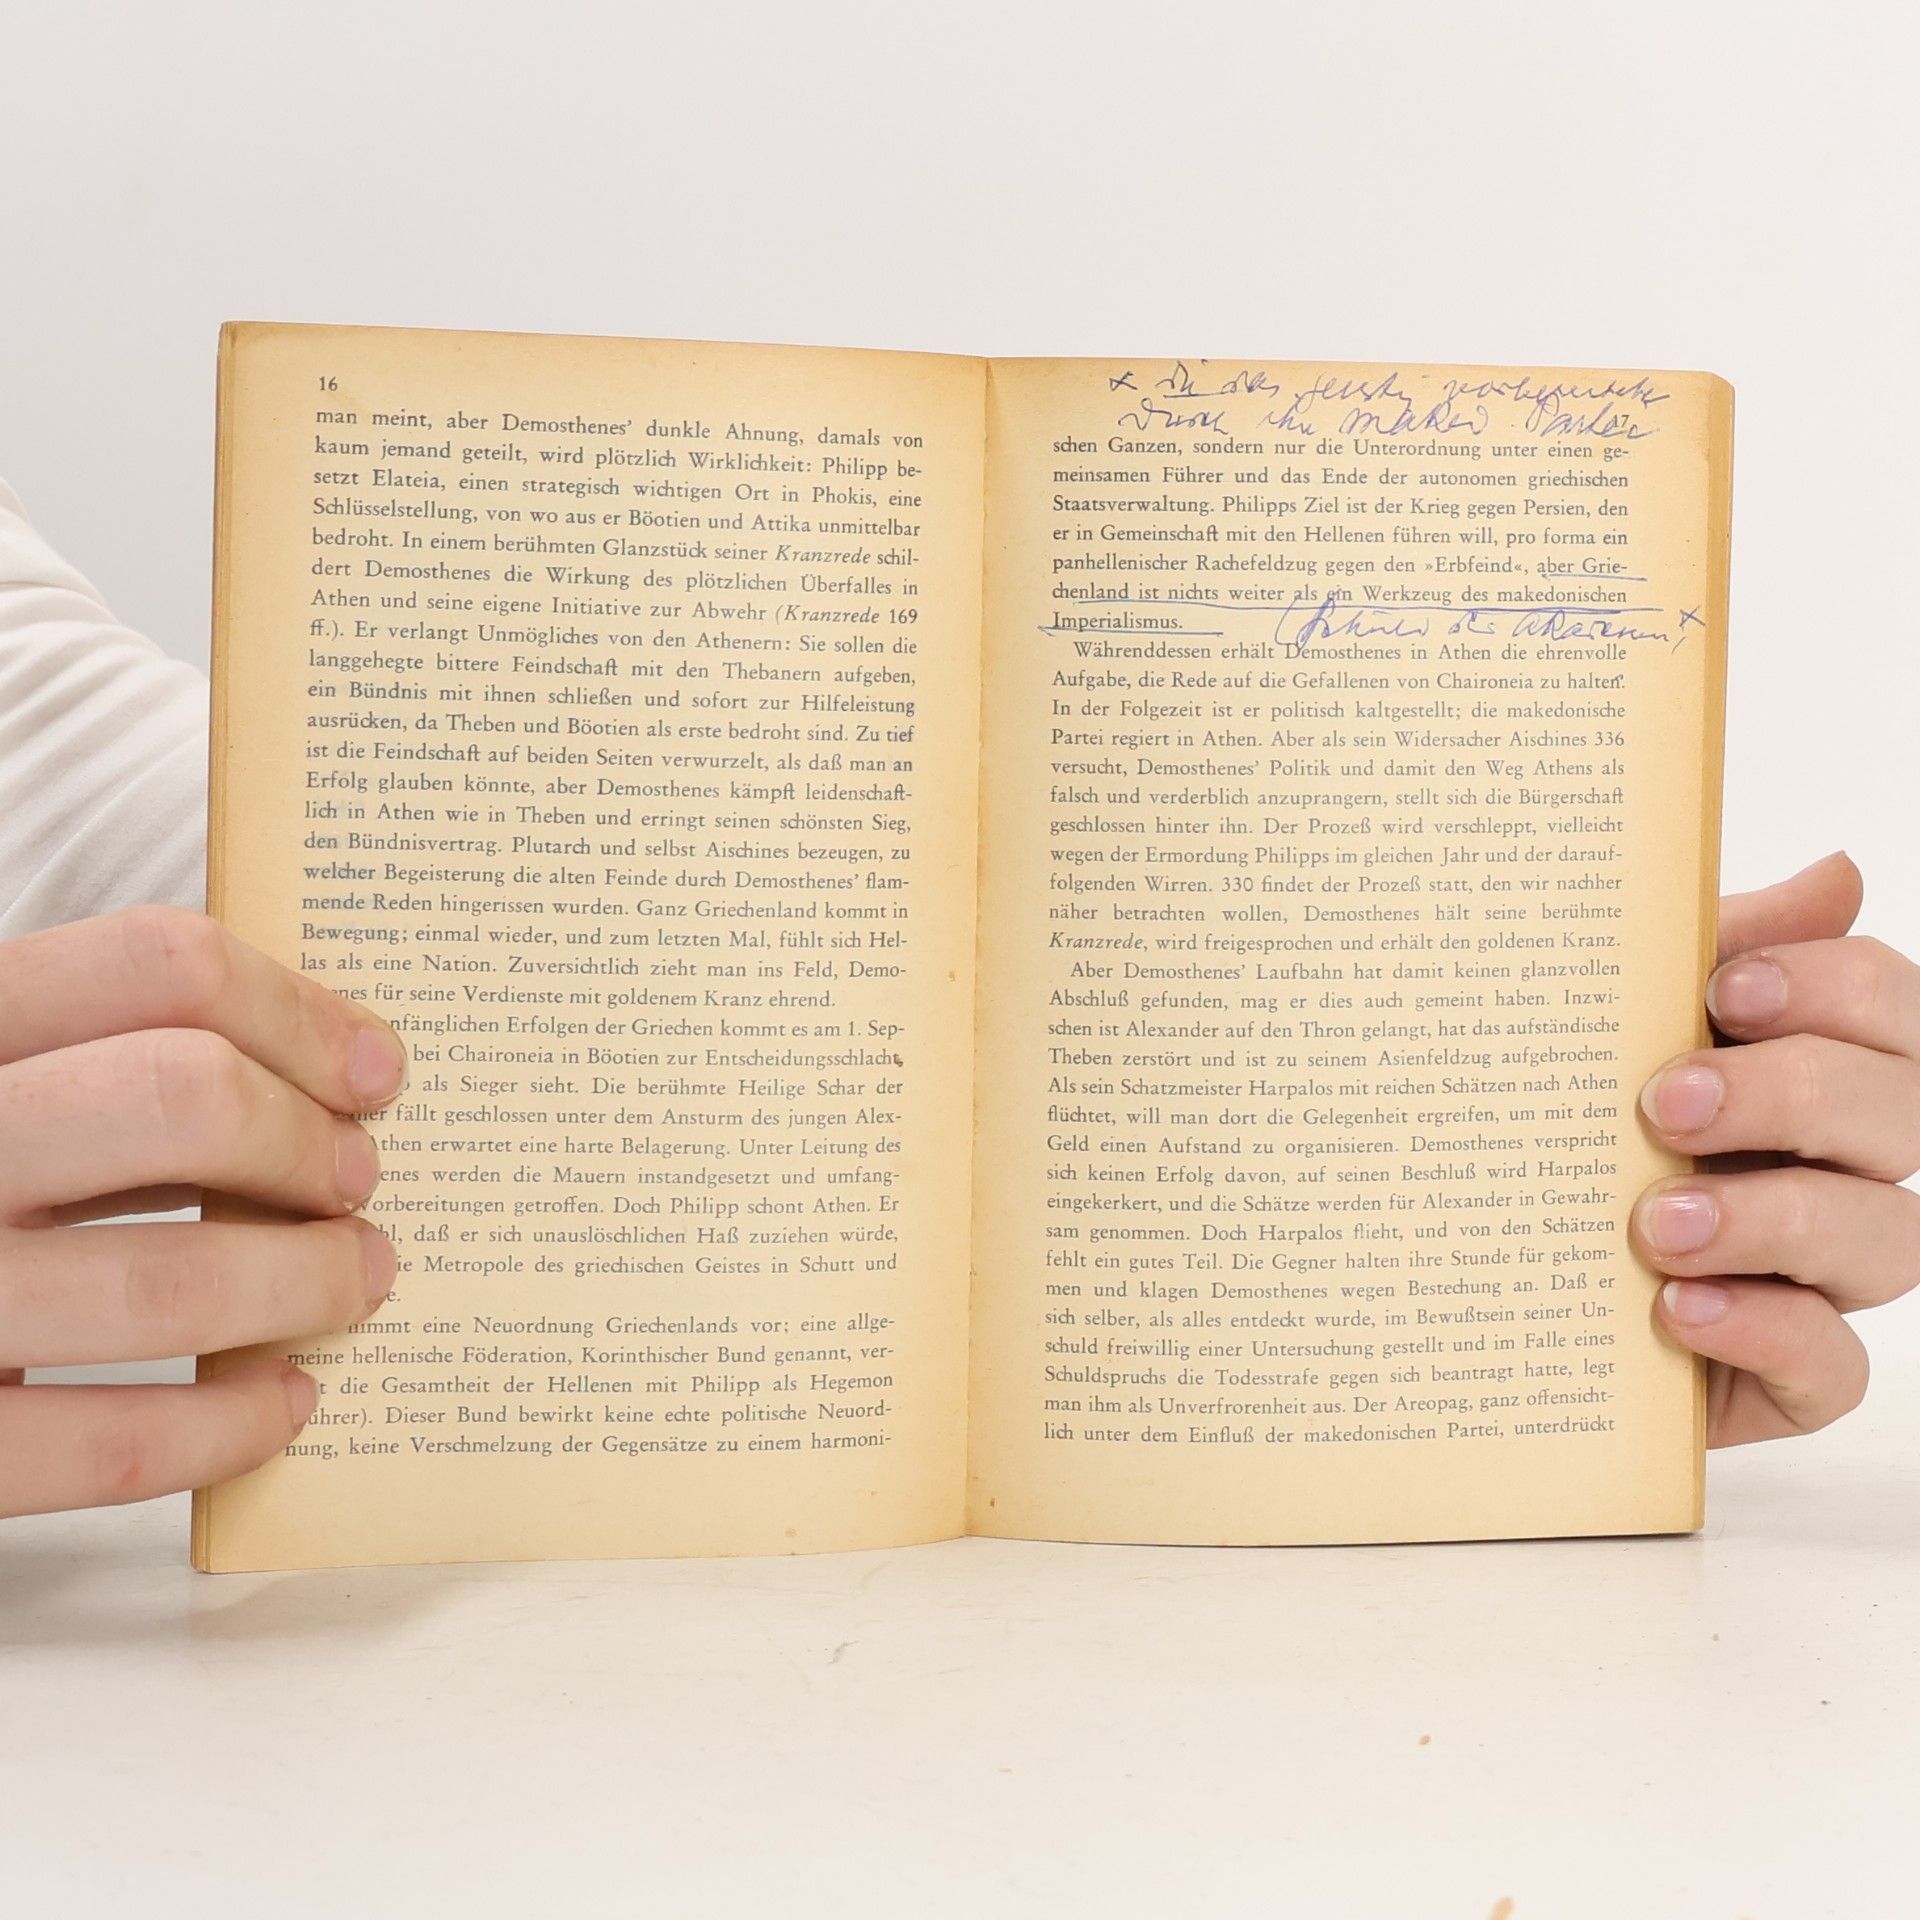 16
man meint, aber Demosthenes’ dunkle Ahnung, damals von
kaum jemand geteilt, wird plötzlich Wirklichkeit: Philipp be-
setzt Elateia, einen strategisch wichtigen Ort in Phokis, eine
Schlüsselstellung, von wo aus er Böotien und Attika unmittelbar
bedroht. In einem berühmten Glanzstück seiner Kranzrede schil-
dert Demosthenes die Wirkung des plötzlichen Überfalles in
Athen und seine eigene Initiative zur Abwehr (Kranzrede 169
ff.). Er verlangt Unmögliches von den Athenern: Sie sollen die
langgehegte bittere Feindschaft mit den Thebanern aufgeben,
ein Bündnis mit ihnen schließen und sofort zur Hilfeleistung
ausrücken, da Theben und Böotien als erste bedroht sind. Zu tief
ist die Feindschaft auf beiden Seiten verwurzelt, als daß man an
Erfolg glauben könnte, aber Demosthenes kämpft leidenschaft-
lich in Athen wie in Theben und erringt seinen schönsten Sieg,
den Bündnisvertrag. Plutarch und selbst Aischines bezeugen, zu
welcher Begeisterung die alten Feinde durch Demosthenes’ flam-
mende Reden hingerissen wurden. Ganz Griechenland kommt in
Bewegung; einmal wieder, und zum letzten Mal, fühlt sich Hel-
las als eine Nation. Zuversichtlich zieht man ins Feld, Demo-
für seine Verdienste mit goldenem Kranz ehrend.
Erfolgen der Griechen kommt es am 1. Sep-
bei Chaironeia in Böotien zur Entscheidungsschlacht,
als Sieger sieht. Die berühmte Heilige Schar der
fällt geschlossen unter dem Ansturm des jungen Alex-
Athen erwartet eine harte Belagerung. Unter Leitung des
werden die Mauern instandgesetzt und umfang-
Vorbereitungen getroffen. Doch Philipp schont Athen. Er
daß er sich unauslöschlichen Haß zuziehen würde,
die Metropole des griechischen Geistes in Schutt und
nimmt eine Neuordnung Griechenlands vor; eine allge-
meine hellenische Föderation, Korinthischer Bund genannt, ver-
die Gesamtheit der Hellenen mit Philipp als Hegemon
Führer). Dieser Bund bewirkt keine echte politische Neuord-
nung, keine Verschmelzung der Gegensätze zu einem harmoni-
durch maked. Partei
schen Ganzen, sondern nur die Unterordnung unter einen ge-
meinsamen Führer und das Ende der autonomen griechischen
Staatsverwaltung. Philipps Ziel ist der Krieg gegen Persien, den
er in Gemeinschaft mit den Hellenen führen will, pro forma ein
panhellenischer Rachefeldzug gegen den »Erbfeind«, aber Grie-
chenland ist nichts weiter als ein Werkzeug des makedonischen
Imperialismus.
Währenddessen erhält Demosthenes in Athen die ehrenvolle
Aufgabe, die Rede auf die Gefallenen von Chaironeia zu halten.
In der Folgezeit ist er politisch kaltgestellt; die makedonische
Partei regiert in Athen. Aber als sein Widersacher Aischines 336
versucht, Demosthenes’ Politik und damit den Weg Athens als
falsch und verderblich anzuprangern, stellt sich die Bürgerschaft
geschlossen hinter ihn. Der Prozeß wird verschleppt, vielleicht
wegen der Ermordung Philipps im gleichen Jahr und der darauf-
folgenden Wirren. 330 findet der Prozeß statt, den wir nachher
näher betrachten wollen, Demosthenes hält seine berühmte
Kranzrede, wird freigesprochen und erhält den goldenen Kranz.
Aber Demosthenes’ Laufbahn hat damit keinen glanzvollen
Abschluß gefunden, mag er dies auch gemeint haben. Inzwi-
schen ist Alexander auf den Thron gelangt, hat das aufständische
Theben zerstört und ist zu seinem Asienfeldzug aufgebrochen.
Als sein Schatzmeister Harpalos mit reichen Schätzen nach Athen
flüchtet, will man dort die Gelegenheit ergreifen, um mit dem
Geld einen Aufstand zu organisieren. Demosthenes verspricht
sich keinen Erfolg davon, auf seinen Beschluß wird Harpalos
eingekerkert, und die Schätze werden für Alexander in Gewahr-
sam genommen. Doch Harpalos flieht, und von den Schätzen
fehlt ein gutes Teil. Die Gegner halten ihre Stunde für gekom-
men und klagen Demosthenes wegen Bestechung an. Daß er
sich selber, als alles entdeckt wurde, im Bewußtsein seiner Un-
schuld freiwillig einer Untersuchung gestellt und im Falle eines
Schuldspruchs die Todesstrafe gegen sich beantragt hatte, legt
man ihm als Unverfrorenheit aus. Der Areopag, ganz offensicht-
lich unter dem Einfluß der makedonischen Partei, unterdrückt